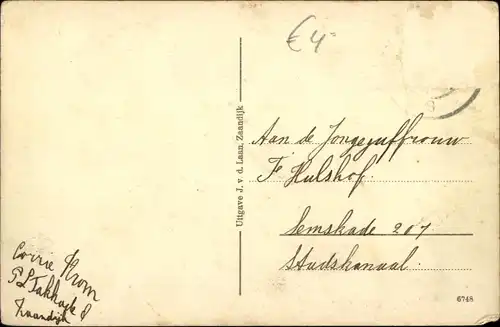 €4-
Uitgave J. v. d. Laan, Zaandijk
Aan de Jongejuffrouw
F. Hulshof.
Semskade 207
Stadskanaal.
Corrie Krom
8
Zaandijk
6748